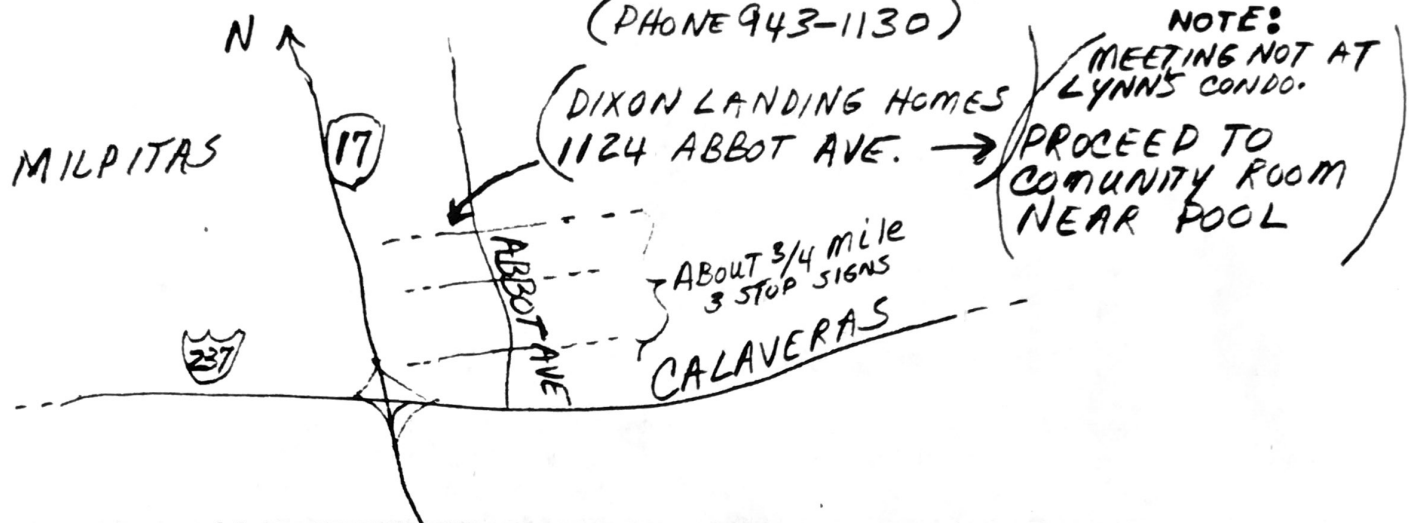 N
(PHONE 943-1130)
NOTE:
MEETING NOT AT
LYNN'S CONDO.
PROCEED TO
COMUNITY ROOM
NEAR POOL
DIXON LANDING HOMES
1124 ABBOT AVE.
MILPITAS
17
ABBOT AVE
ABOUT 3/4 mile
3 STOP SIGNS
237
CALAVERAS